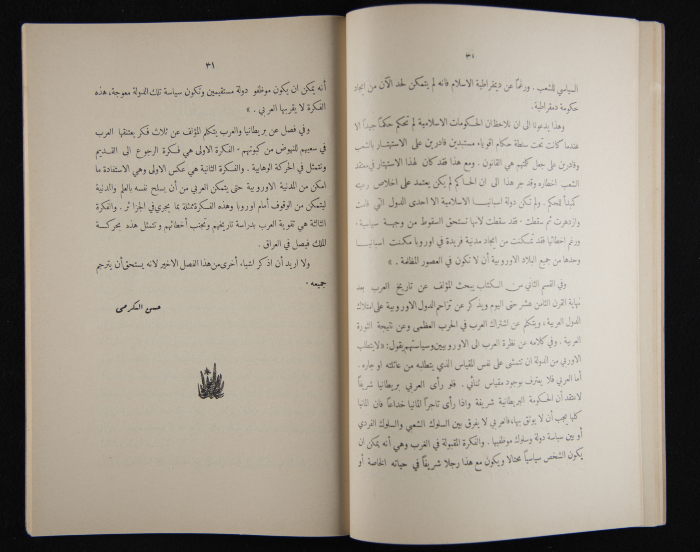 ٣١
السياسي للشعب . ورغماً عن ديمقراطية الاسلام فانه لم يتمكن لحد الآن من ايجاد
حكومة دمقراطية .
وهذا يدعونا الى ان نلاحظ ان الحكومات الاسلامية لم تحكم حكماً جيداً الا
عندما كانت تحت سلطة حكام اقوياء مستبدين قادرين على الاستيثار بالشعب
وقادرين على جعل كلمتهم هي القانون . ومع هذا فقد كان لهذا الاستيثار في معتقد
الشعب اخطاره وقد جر هذا الى ان الحاكم لم يكن يعتمد على اخلاص رعيته
كمبدأ للحكم . ولم تكن دولة اسبانيا الاسلامية الا احدى الدول التي قامت
وازدهرت ثم سقطت . فقد سقطت لانها تستحق السقوط من وجهة سياسية .
ورغم اخطائها فقد تمكنت من ايجاد مدنية فريدة في اوروبا مكنت اسبانيا
وحدها من جميع البلاد الاوروبية أن لا تكون في العصور المظلمة » .
وفي القسم الثاني من الكتاب يبحث المؤلف عن تاريخ العرب بعد
نهاية القرن الثامن عشر حتى اليوم ويذكر عن تزاحم الدول الاوروبية على امتلاك
الدول العربية ، ويتكلم عن اشتراك العرب في الحرب العظمى وعن نتيجة الثورة
العربية . وفي كلامه عن نظرة العرب الى الاوروبيين وسياستهم يقول : « لا يتطلب
الاوربي من الدولة ان تتمشى على نفس المقياس الذي يتطلبه من عائلته او جاره .
أما العربي فلا يعترف بوجود مقياس ثنائي . فلو رأى العربي بريطانيا شريفاً
لاعتقد أن الحكومة البريطانية شريفة واذا رأى تاجراً المانيا خداعاً فان المانيا
كلها يجب أن لا يوثق بها ، فالعربي لا يفرق بين السلوك الشعبي والسلوك الفردي
أو بين سياسة دولة وسلوك موظفيها . والفكرة المقبولة في الغرب وهي أنه يمكن ان
يكون الشخص سياسياً محتالا ويكون مع هذا رجلا شريفاً في حياته الخاصة أو
٣١
أنه يمكن ان يكون موظفو دولة مستقيمين وتكون سياسة تلك الدولة معوجة ، هذه
الفكرة لا يقر بها العربي » .
وفي فصل عن بريطانيا والعرب يتكلم المؤلف عن ثلاث فكر يعتنقها العرب
في سعيهم للنهوض من كبوتهم - الفكرة الاولى هي فكرة الرجوع الى القديم
وتتمثل في الحركة الوهابية . والفكرة الثانية هي عكس الاولى وهي الاستفادة ما
امكن من المدنية الاوروبية حتى يتمكن العربي من أن يسلح نفسه بالعلم والمدنية
ليتمكن من الوقوف أمام اوروبا وهذه الفكرة ممثلة بما يجري في الجزائر . والفكرة
الثالثة هي تقوية العرب بدراسة تاريخهم وتجنب أخطائهم وتتمثل هذه بحركة
الملك فيصل في العراق .
ولا اريد أن اذكر اشياء أخرى من هذا الفصل الاخير لانه يستحق أن يترجم
جميعه .
حسن الكرمي